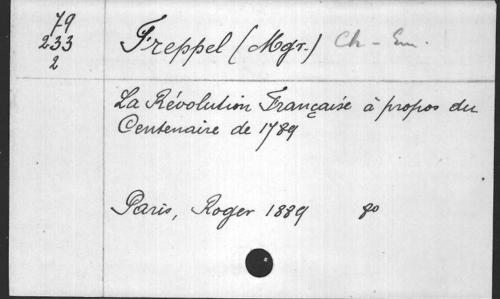 79
233
2
Freppel (Mgr.) Ch-Em.
La Révolution Française à propos du
Centenaire de 1789
Paris, Roger 1889 8o